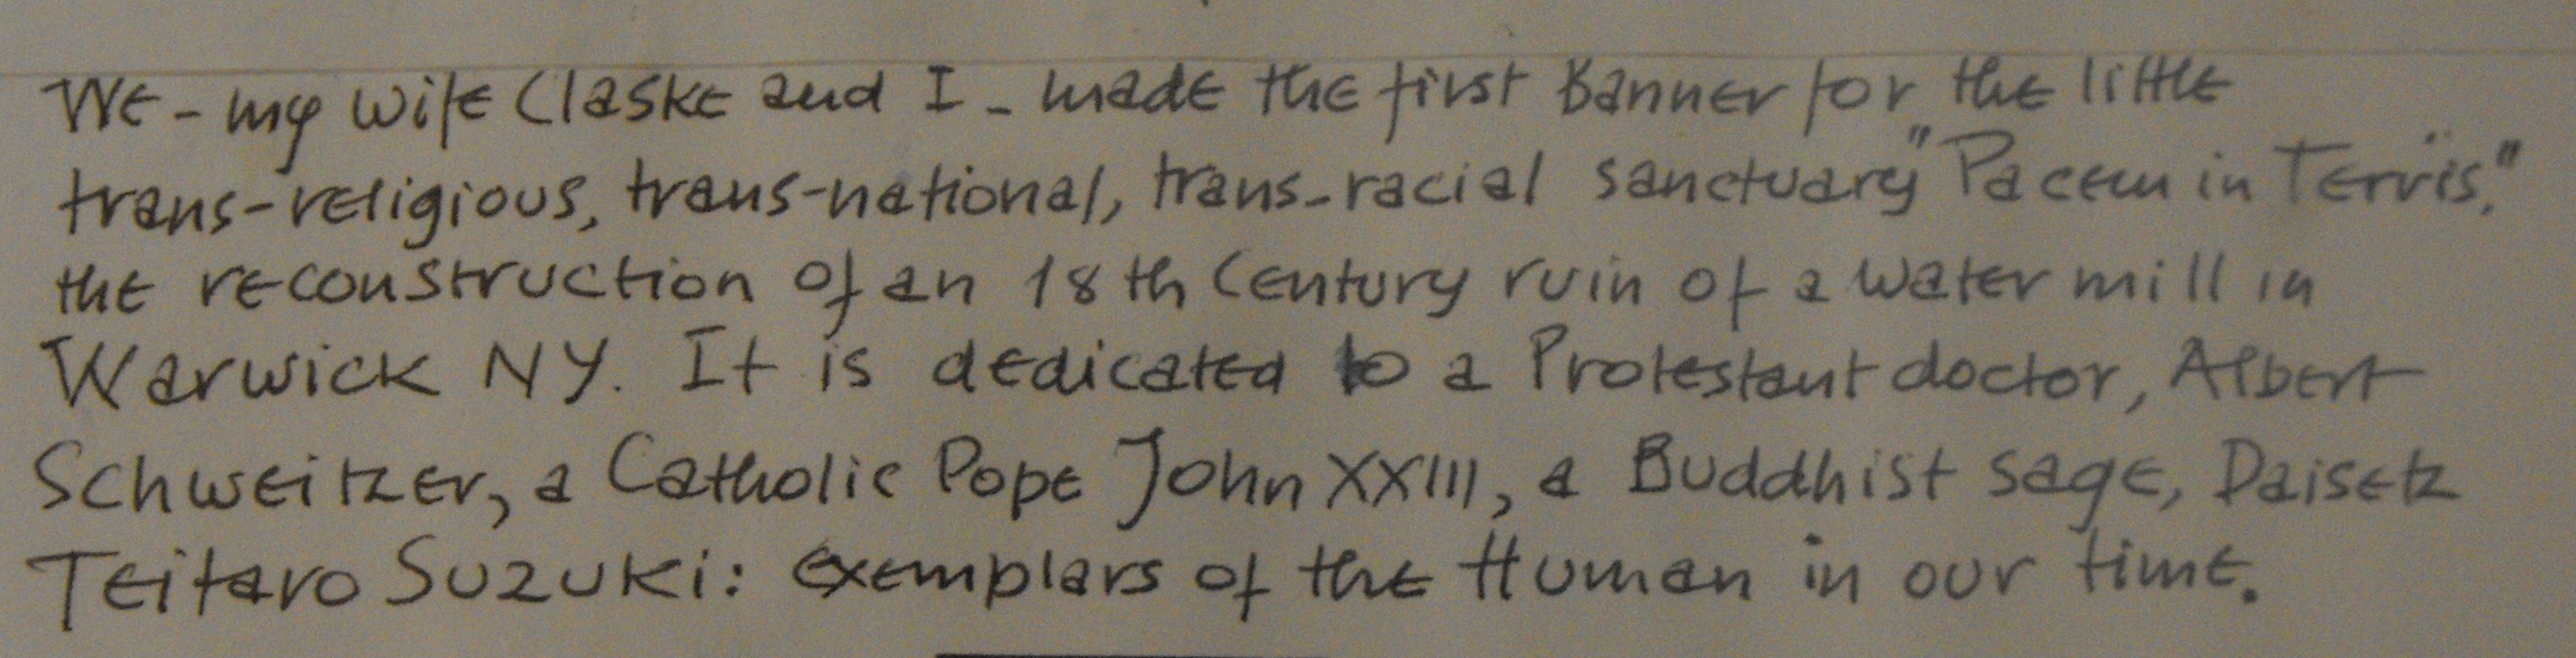 We - my wife Claske and I - made the first Banner for the little
trans-religious, trans-national, trans-racial sanctuary "Pacem in Terris,"
the reconstruction of an 18th Century ruin of a water mill in
Warwick NY. It is dedicated to a Protestant doctor, Albert
Schweitzer, a Catholic Pope John XXIII, a Buddhist sage, Daisetz
Teitaro Suzuki: exemplars of the Human in our time.